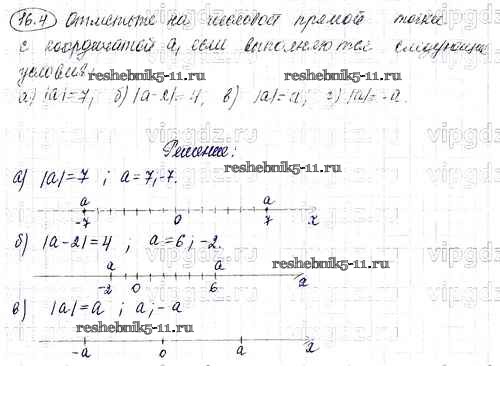 16.4 Отметьте на числовой прямой точки
с координатой а, если выполняются следующие
условия:
reshebnik5-11.ru
а) |а|=7; б) |а-2|=4, в) |а|=а; г) |а|=-а.
vipgdz.ru
Решение:
reshebnik5-11.ru
а) |а|=7 ; а=7;-7.
а а
-7 0 7 x
б) |а-2|=4 ; а=6;-2.
а а
reshebnik5-11.ru
-2 0 6 x
в) |а|=а ; а;-а
reshebnik5-11.ru
-а 0 а x